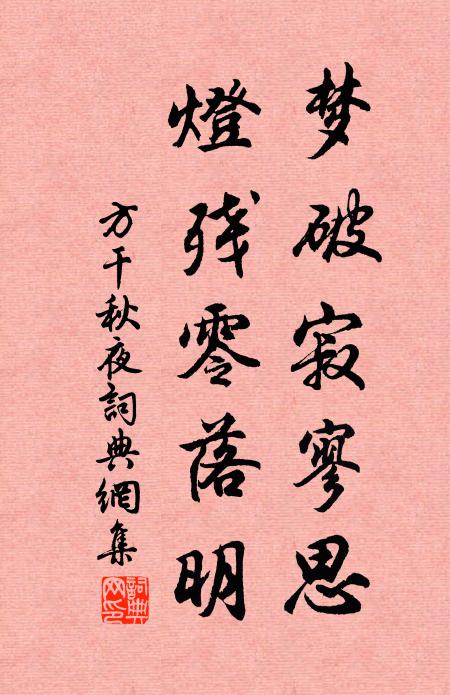 梦破寂寥思
燈残零落明
方干秋夜詞典網集
詞典网印